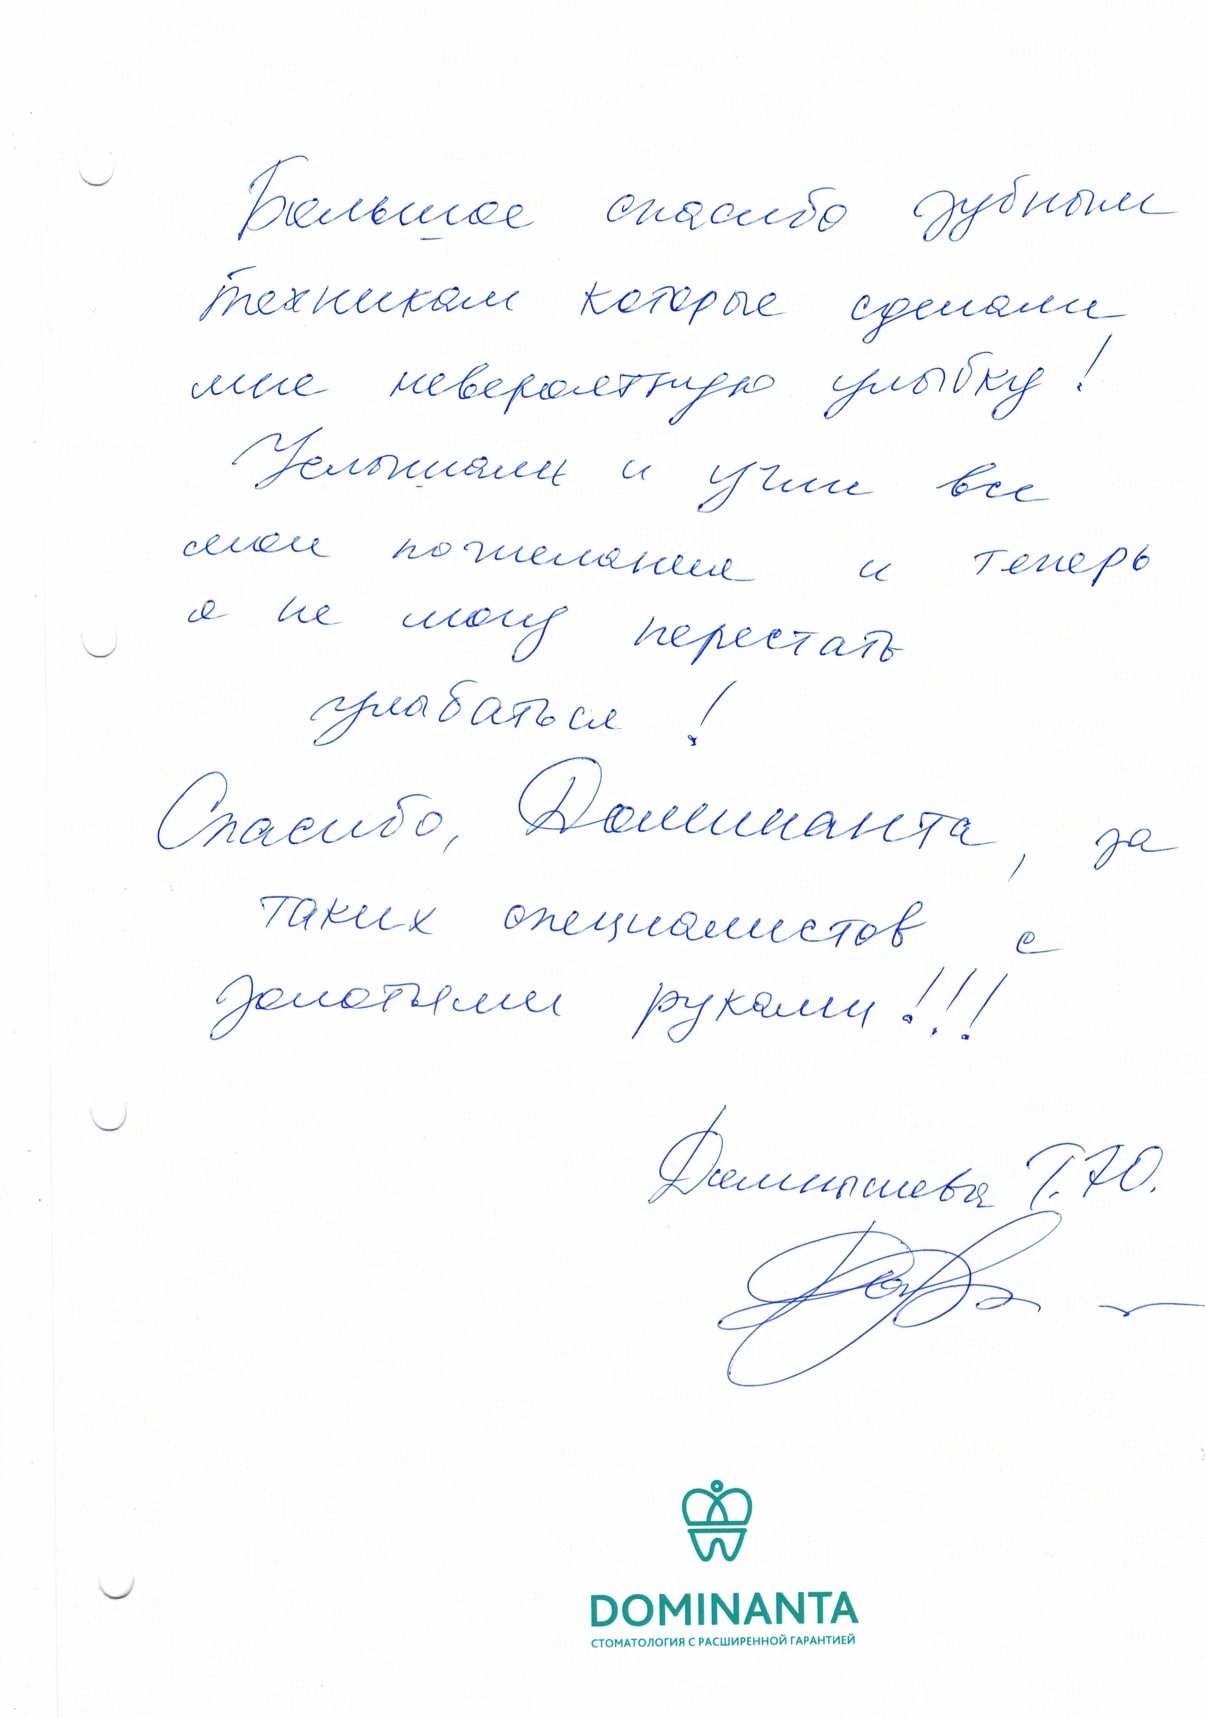 Большое спасибо зубным
техникам которые сделали
мне невероятную улыбку!
Услышали и учли все
мои пожелания и теперь
я не могу перестать
улыбаться!
Спасибо, Доминанта, за
таких специалистов с
золотыми руками!!!
Т.Ю.
DOMINANTA
СТОМАТОЛОГИЯ С РАСШИРЕННОЙ ГАРАНТИЕЙ